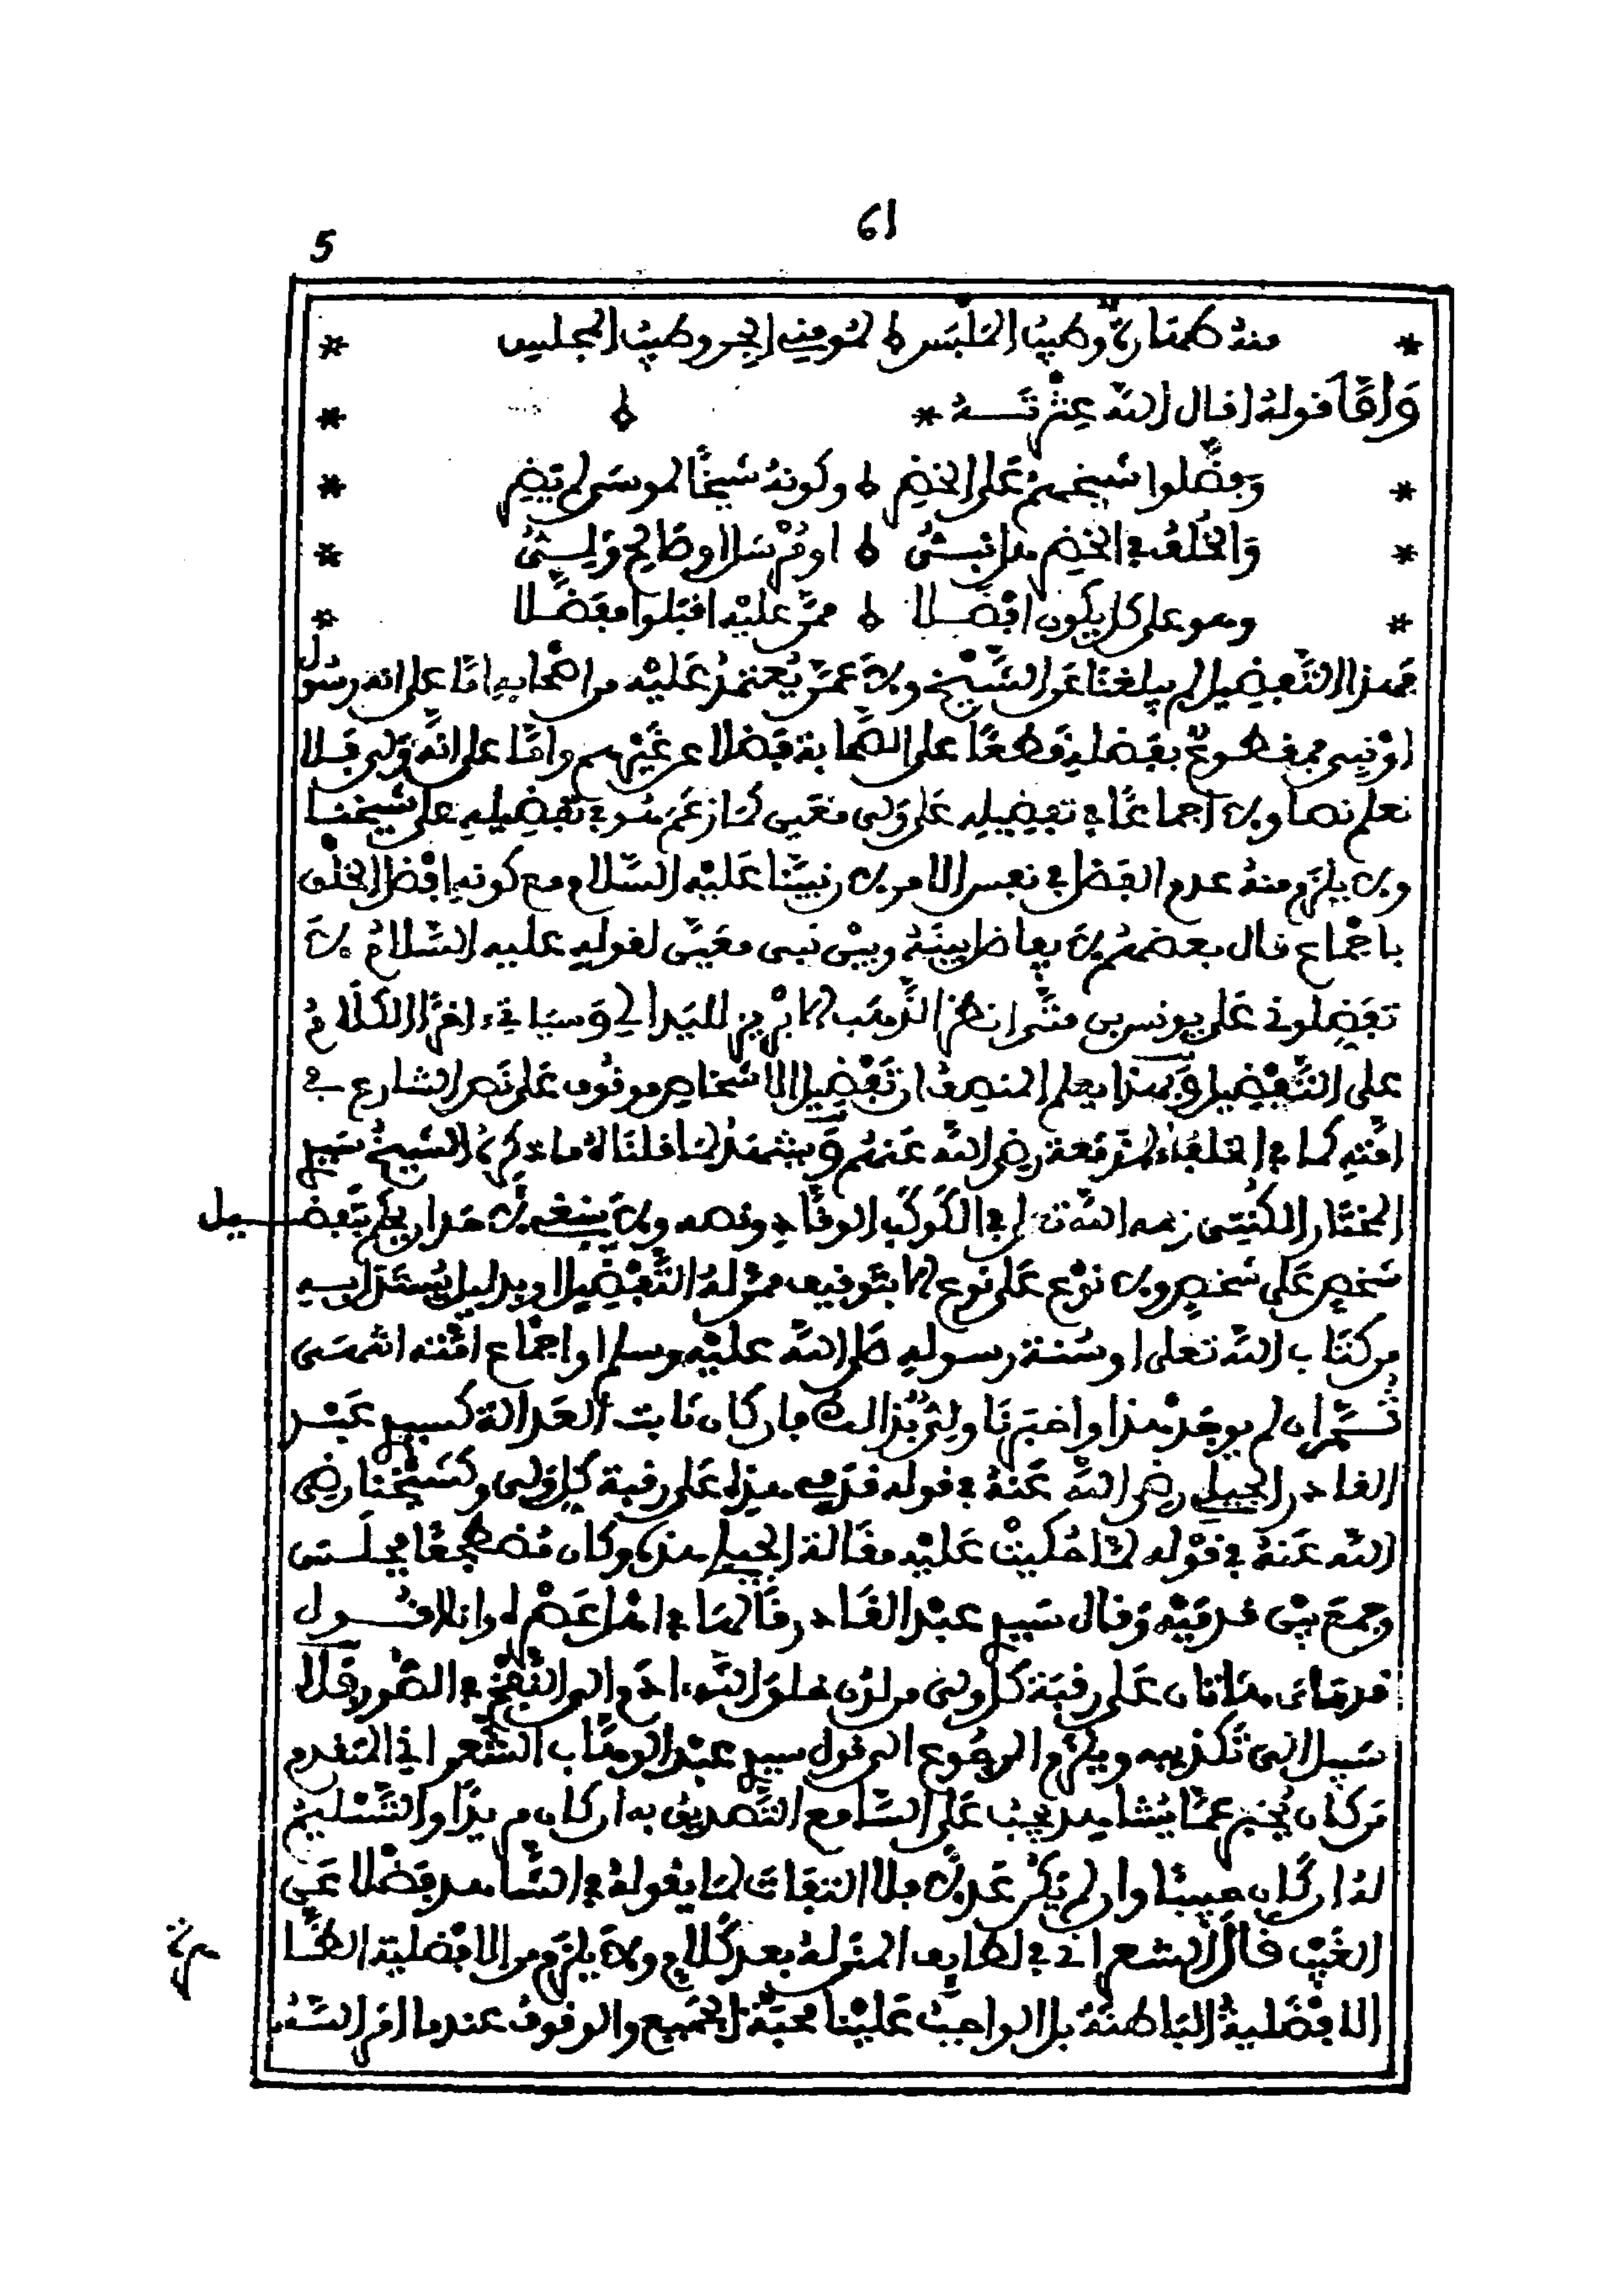 61
5
* منه طهارة وطيب الملبس ه لمومنى الجن وطيب المجلس *
وأما قوله اقال الله عثرته * ه *
* وفضلوا شيخهم على الخضر ه وكونه شيخا لموسى لم يضر *
* والخلف في الخضر هل نبيء ه او مرسل او صالح وليء *
* وهو على كل يكون افضلا ه ممن عليه اقبلوا مفضلا *
فهذا التفضيل لم يبلغنا عن الشيخ ولا عمن يعتمد عليه من اصحابه اما على انه رسول
او نبي فمقطوع بفضله قطعا على الصحابة فضلا عن غيرهم واما على انه ولي فلا
نعلم نصا ولا اجماعا في تفضيله على ولي معين كما زعم هو في تفضيله على شيخنا
ولا يلزم منه عدم الفضل في نفس الامر لان نبينا عليه السلام مع كونه افضل الخلق
باجماع قال بعضهم لا يفاضل بينه وبين نبي معين لقوله عليه السلام لا
تفضلوني على يونس بن متى انظر الذهب الابريز لليدالي وسياتي اخر الكلام
على التفضيل وبهذا يعلم المنصف ان تفضيل الاشخاص موقوف على نص الشارع في
امته كما في الخلفاء الاربعة رضي الله عنهم ويشهد لما قلناه ما ذكره الشيخ سيد
المختار الكنتي رحمه الله تعلى في الكوكب الوقاد ونصه ولا ينبغي لاحد ان يحكم بتفضيل
شخص على شخص ولا نوع على نوع الا بتوفيف ممن له التفضيل او بدليل يستدل به
من كتاب الله تعلى او سنة رسوله صلى الله عليه وسلم او اجماع امته انتهى
ثم ان لم يوجد هذا واخبرنا ولي بذالك فان كان ثابت العدالة كسيد عبد
القادر الجيلي رضي الله عنه في قوله قدمي هذه على رقبة كل ولي وكشيخنا رضي
الله عنه في قوله لما حكيت عليه مقالة الجيلي هذه وكان مضطجعا فجلس
وجمع بين قدميه وقال سيد عبد القادر قالها في اهل عصره وانا اقول
قدماي هاتان على رقبة كل ولي من لدن خلق الله ادم الى النفخ في الصور فلا
سبيل الى تكذيبه ويلزم الرجوع الى قول سيد عبد الوهاب الشعراني المتقدم
من كان يخبر عما يشاهد يجب على السامع التصديق به ان كان مريدا والتسليم
له ان كان اجنبيا وان لم يكن عدلا فلا التفات لما يقوله في الشاهد فضلا عن
الغيب قال الشعراني في لطايف المنن له بعد كلام ولا يلزم من الافضلية الظا
هرة
الافضلية الباطنة بل الواجب علينا محبة الجميع والوقوف عند ما امر الله